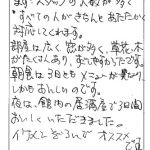 ます。スタッフの人数が多く
すべての人がきちんとあたたかく
対応してくれます。
部屋は広く、窓が多く、草花、木
がたくさんあり、すてきでした。
朝食は3日ともメニューが異なり、
しかもおいしいのです。
夜は、館内の居酒屋で3日間
おいしくいただきました。
イケメンぞろいで オススメ
です